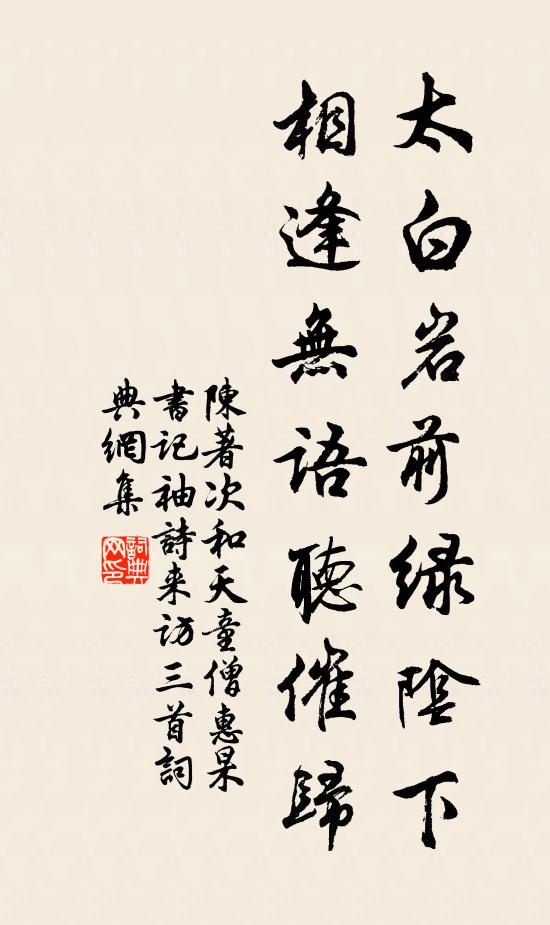 太白岩前緑陰下
相逢無語聽催歸
陳著次和天童僧惠杲
書記袖詩来訪三首詞
典網集
詞典网印